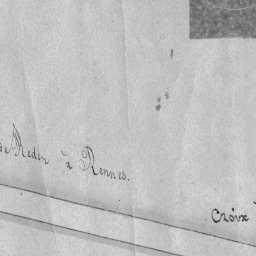 de Redon à Rennes.
Croix